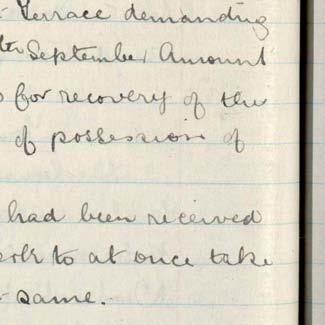 Terrace demanding
th September Amount
for recovery of the
of possession of
had been received
to at once take
same.